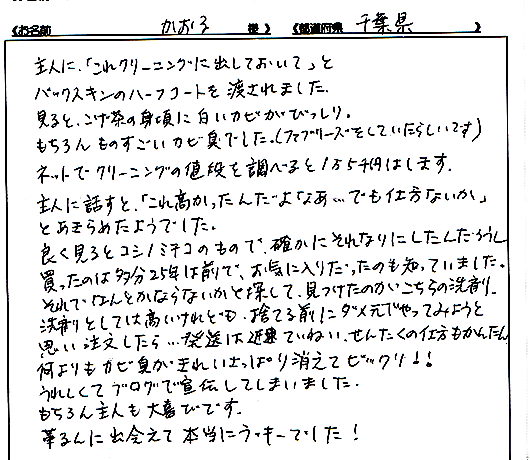 《お名前 かおる 様》 《都道府県 千葉県 》
主人に、「これクリーニングに出しておいて」と
バックスキンのハーフコートを渡されました。
見ると、こげ茶の身頃に白いカビがびっしり。
もちろんものすごいカビ臭でした。(ファブリーズをしていたらしいです)
ネットでクリーニングの値段を調べると1万5千円はします。
主人に話すと、「これ高かったんだよなあ…でも仕方ないか」
とあきらめたようでした。
良く見るとコシノミチコのもので、確かにそれなりにしたんだろうし
買ったのは多分25年は前で、お気に入りだったのも知っていました。
それでなんとかならないかと探して、見つけたのがこちらの洗剤。
洗剤としては高いけれども、捨てる前にダメ元でやってみようと
思い注文したら…発送は迅速ていねい、せんたくの仕方もかんたん
何よりもカビ臭がきれいさっぱり消えてビックリ!!
うれしくてブログで宣伝してしまいました。
もちろん主人も大喜びです。
革るんに出会えて本当にラッキーでした!